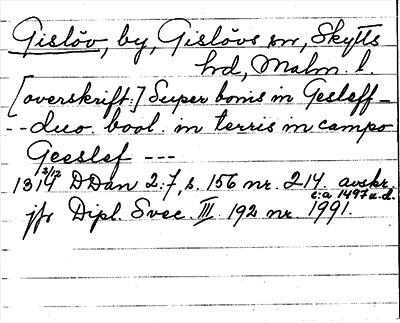 Gislöv, by, Gislövs sn, Skytts
hd, Malm. l.
[overskrift:] Super bonis in Gesleff –
-- duo bool. in terris in campo
Geeslef ---
2/12
1314 DDan 2:7, s. 156 nr. 214. avskr.
c:a 1497 u.d.
jfr Dipl. Svec. III. 192 nr. 1991.